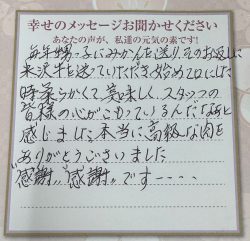 幸せのメッセージお聞かせください
あなたの声が、私達の元気の素です!
毎年甥っ子にみかんを送り、そのお返しに
米沢牛を送っていただき、始めて口にした
時柔らかくて、美味しく、スタッフの
皆様の心がこもっているんだなあと
感じました。本当に高級な肉を
ありがとうございました
"感謝" "感謝" です----